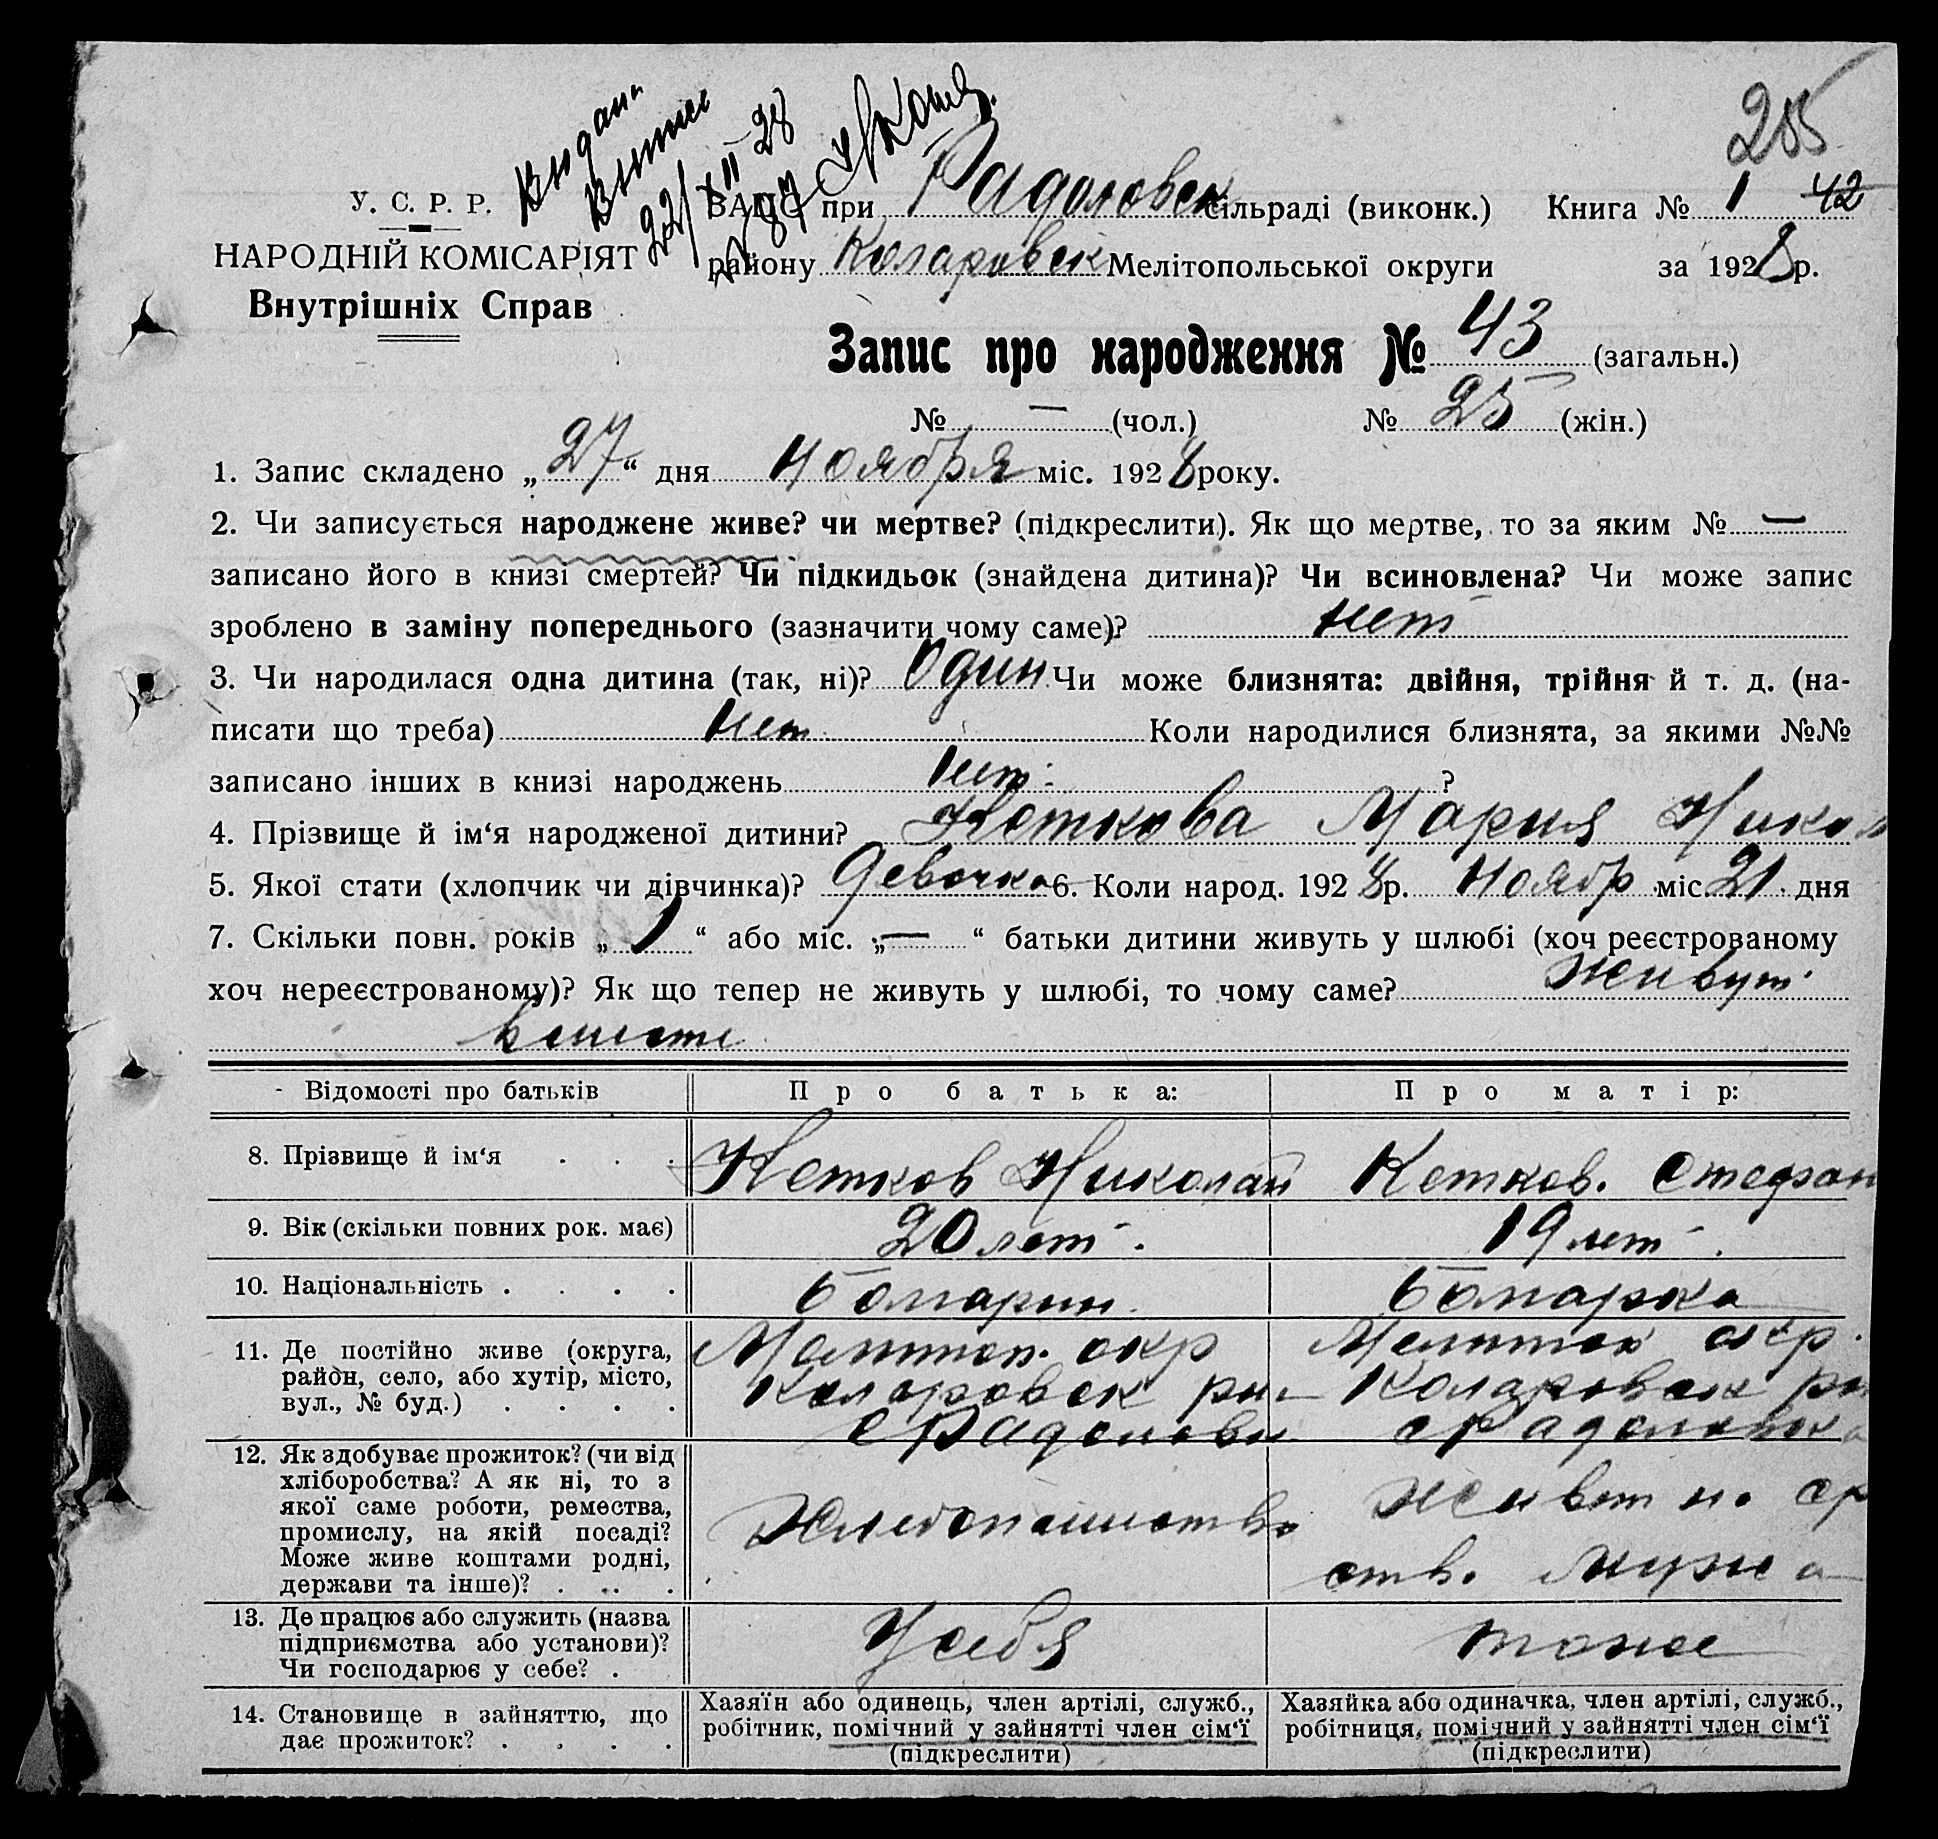 255
видана
выпис
22/XII 28
№ 87
У. С. Р. Р.
НАРОДНІЙ КОМІСАРІЯТ
Внутрішніх Справ
ЗАГС при Радоловск сільраді (виконк.) Книга № 1 42
району Коларовск Мелітопольської округи за 1928 р.
Запис про народження № 43 (загальн.)
№ — (чол.) № 25 (жін.)
1. Запис складено „27“ дня Ноября міс. 1928 року.
2. Чи записується народжене живе? чи мертве? (підкреслити). Як що мертве, то за яким № —
записано його в книзі смертей? Чи підкидьок (знайдена дитина)? Чи всиновлена? Чи може запис
зроблено в заміну попереднього (зазначити чому саме)? нет
3. Чи народилася одна дитина (так, ні)? Один Чи може близнята: двійня, трійня й т. д. (на-
писати що треба) нет Коли народилися близнята, за якими №№
записано інших в книзі народжень нет ?
4. Прізвище й ім‘я народженої дитини? Кеткова Мария Никол
5. Якої стати (хлопчик чи дівчинка)? девочка 6. Коли народ. 1928 р. Ноябр міс. 21 дня
7. Скільки повн. років „1“ або міс. „—“ батьки дитини живуть у шлюбі (хоч реєстрованому
хоч нереєстрованому)? Як що тепер не живуть у шлюбі, то чому саме? живут
вместе
Відомості про батьків Про батька: Про матір:
8. Прізвище й ім‘я . . . Кетков Николай Кетков. Стефан
9. Вік (скільки повних рок. має) 20 лет. 19 лет.
10. Національність . . . . болгарин. болгарка
11. Де постійно живе (округа, район, село, або хутір, місто, вул., № буд.) . . . . Мелитоп. окр Коларовск рн с Радоловк Мелитоп окр. Коларовск рн с Радоловка
12. Як здобуває прожиток? (чи від хліборобства? А як ні, то з якої саме роботи, ремества, промислу, на якій посаді? Може живе коштами родні, держави та інше)? . . . . Хлебопашество Живет н. ср ств. мужа
13. Де працює або служить (назва підприємства або установи)? Чи господарює у себе? . У себя тоже
14. Становище в зайняттю, що дає прожиток? . . . . Хазяїн або одинець, член артілі, служб., робітник, помічний у зайнятті член сім‘ї (підкреслити) Хазяйка або одиначка, член артілі, служб., робітниця, помічний у зайнятті член сім‘ї (підкреслити)